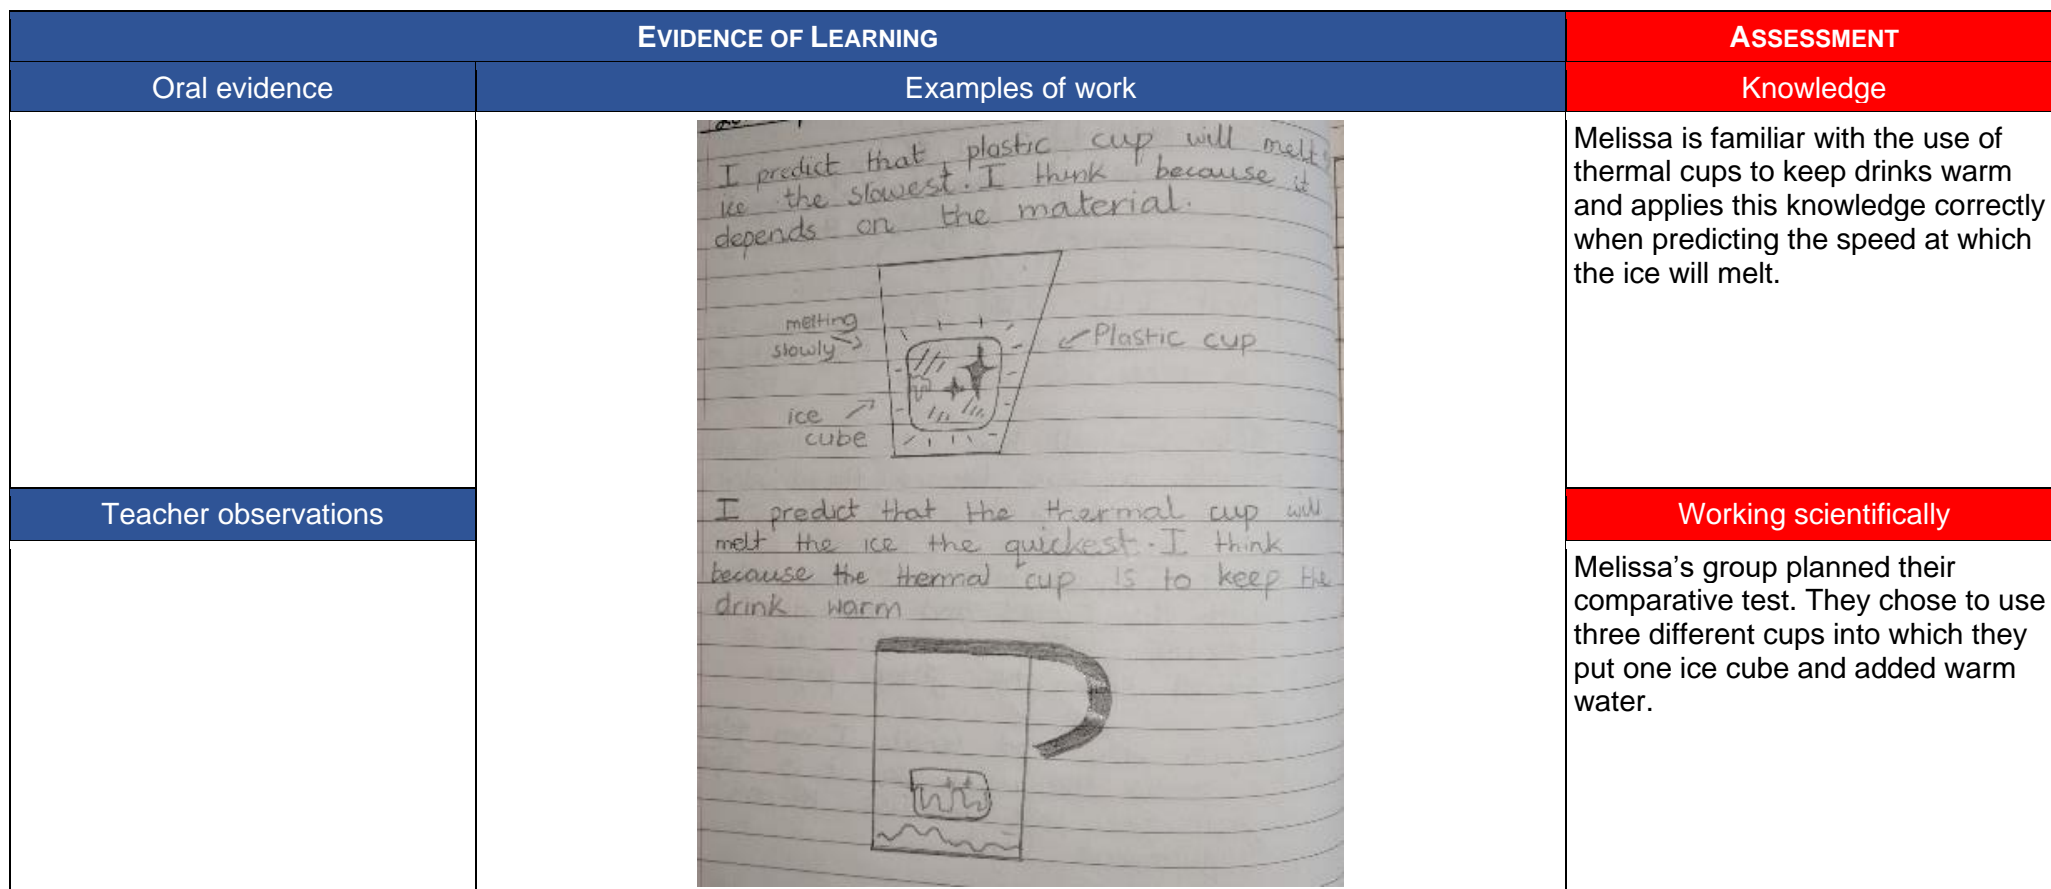 EVIDENCE OF LEARNING
ASSESSMENT
Oral evidence
Examples of work
Knowledge
I predict that plastic cup will melt
ice the slowest. I think because it
depends on the material.
melting
slowly
Plastic cup
ice
cube
I predict that the thermal cup will
melt the ice the quickest. I think
because the thermal cup is to keep the
drink warm
Melissa is familiar with the use of
thermal cups to keep drinks warm
and applies this knowledge correctly
when predicting the speed at which
the ice will melt.
Teacher observations
Working scientifically
Melissa's group planned their
comparative test. They chose to use
three different cups into which they
put one ice cube and added warm
water.